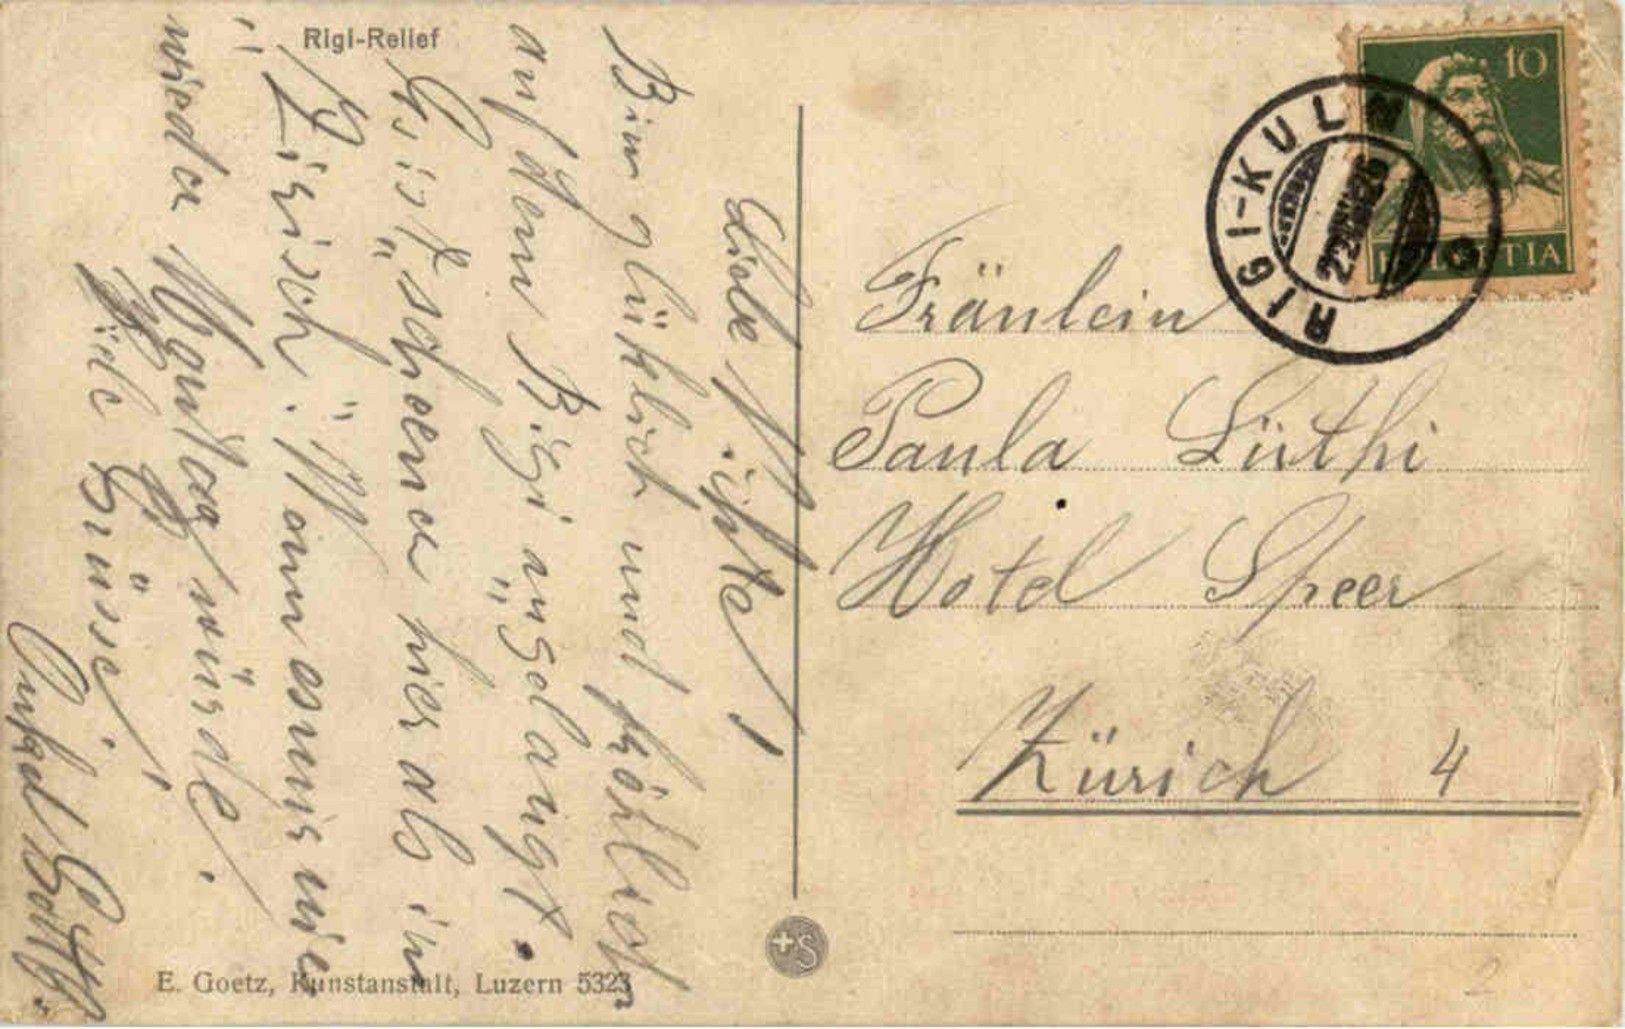 Rigi-Relief
Liebe
Bin glüklich und fröhlich
auf dem Rigi angelangt.
Es ist schoener hier als in
Zürich. Wann es nur nie
wieder Montag würde.
Viele Grüsse!
Onkel
E. Goetz, Kunstanstalt, Luzern 5323
+S
10
HELVETIA
RIGI-KULM
22
Fräulein
Paula Lüthi
Hotel Speer
Zürich 4
2